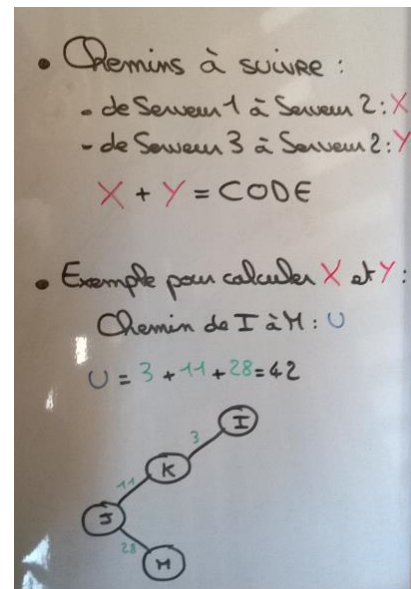 • Chemins à suivre :
- de Serveur 1 à Serveur 2 : X
- de Serveur 3 à Serveur 2 : Y
X + Y = CODE
• Exemple pour calculer X et Y :
Chemin de I à H : U
U = 3 + 11 + 28 = 42
I
3
K
11
J
28
H